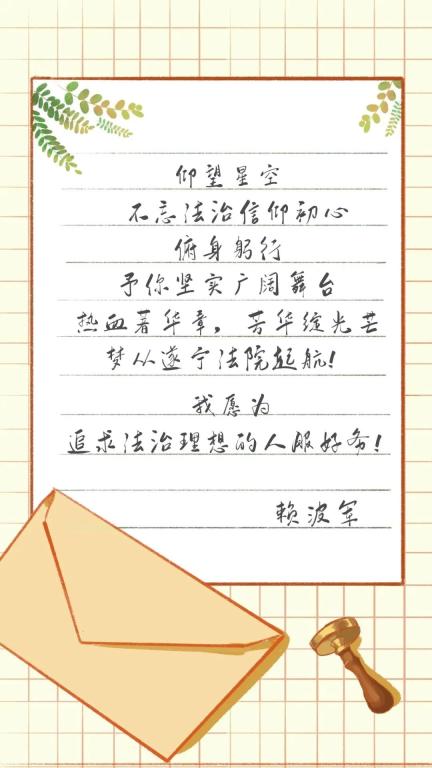 仰望星空
不忘法治信仰初心
俯身躬行
予你坚实广阔舞台
热血著华章，芳华绽光芒
梦从遂宁法院起航！
我愿为
追求法治理想的人服好务！
赖波军